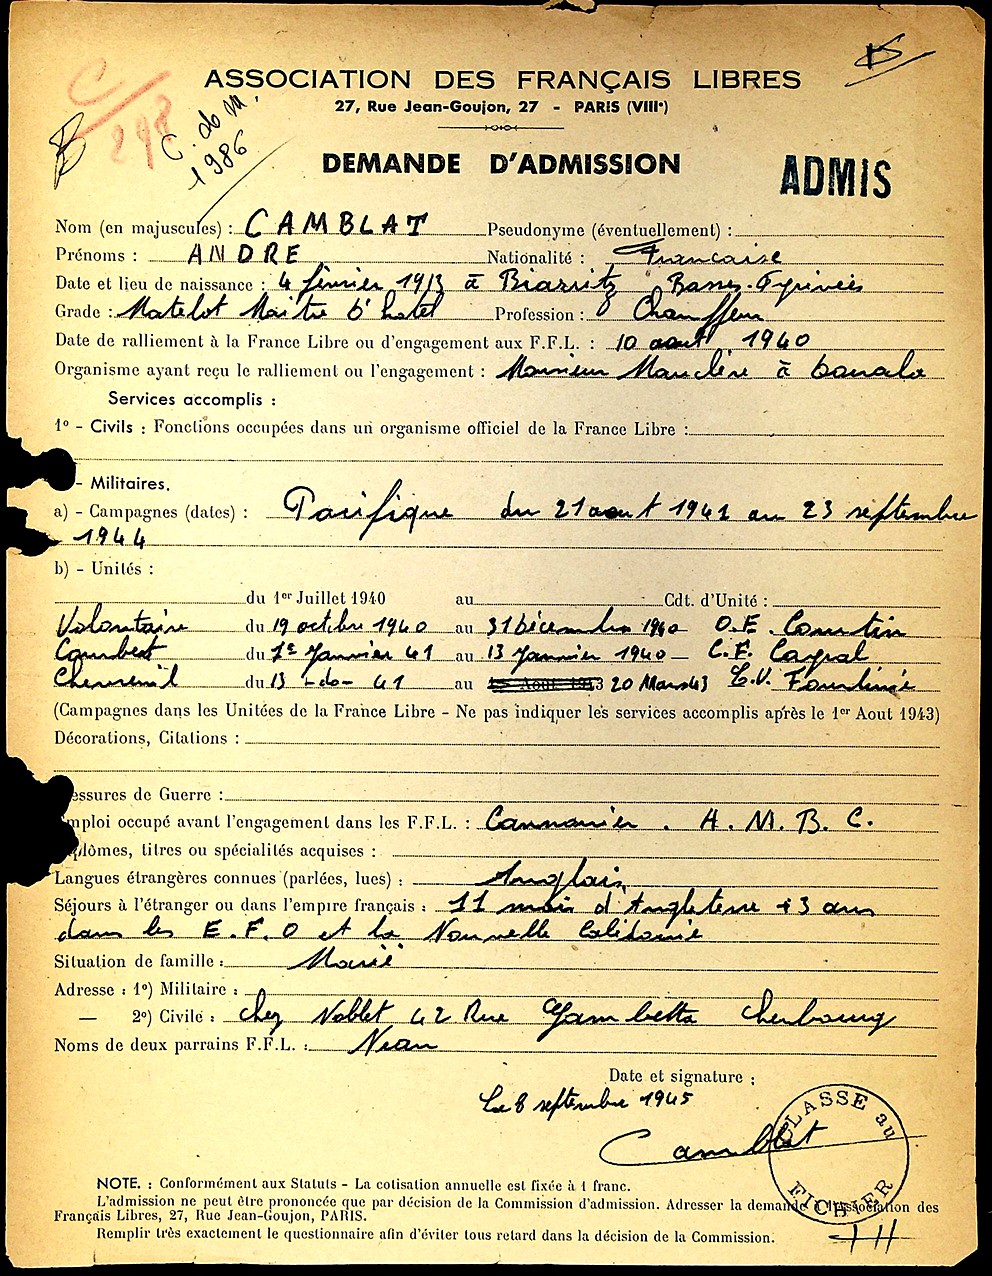 ASSOCIATION DES FRANÇAIS LIBRES
27, Rue Jean-Goujon, 27 - PARIS (VIIIe)
C/298
C. de M.
1986
DEMANDE D'ADMISSION
ADMIS
Nom (en majuscules) : CAMBLAT Pseudonyme (éventuellement) :
Prénoms : ANDRE Nationalité : Francaise
Date et lieu de naissance : 4 février 1913 à Biarritz Basses-Pyrénées
Grade : Matelot Maître d'hotel Profession : Chauffeur
Date de ralliement à la France Libre ou d'engagement aux F.F.L. : 10 aout 1940
Organisme ayant reçu le ralliement ou l'engagement : Monsieur Mauclère à
Services accomplis :
1º - Civils : Fonctions occupées dans un organisme officiel de la France Libre :
- Militaires.
a) - Campagnes (dates) : Pacifique du 21 aout 1941 au 23 septembre
1944
b) - Unités :
du 1er Juillet 1940 au Cdt. d'Unité :
Volontaire du 19 octobre 1940 au 31 Décembre 1940 O.E. Courtin
Courbet du 1er Janvier 41 au 13 Janvier 1940 - C.F. Cayral
Chevreuil du 13 -do- 41 au 20 Mars 43 L.V. Fourlinié
(Campagnes dans les Unitées de la France Libre - Ne pas indiquer les services accomplis après le 1er Aout 1943)
Décorations, Citations :
essures de Guerre :
mploi occupé avant l'engagement dans les F.F.L. : Cannonier. A. M. B. C.
plômes, titres ou spécialités acquises :
Langues étrangères connues (parlées, lues) : Anglais
Séjours à l'étranger ou dans l'empire français : 11 mois d'Angleterre + 3 ans
dans les E.F.O et la Nouvelle Calédonie
Situation de famille : Marié
Adresse : 1º) Militaire :
— 2º) Civile : chez Noblet 42 Rue Gambetta Cherbourg
Noms de deux parrains F.F.L. :
Date et signature :
Le 8 septembre 1945
Camblat
CLASSE au
FICHIER
NOTE. : Conformément aux Statuts - La cotisation annuelle est fixée à 1 franc.
L'admission ne peut être prononcée que par décision de la Commission d'admission. Adresser la demande à l'Association des
Français Libres, 27, Rue Jean-Goujon, PARIS.
Remplir très exactement le questionnaire afin d'éviter tous retard dans la décision de la Commission.